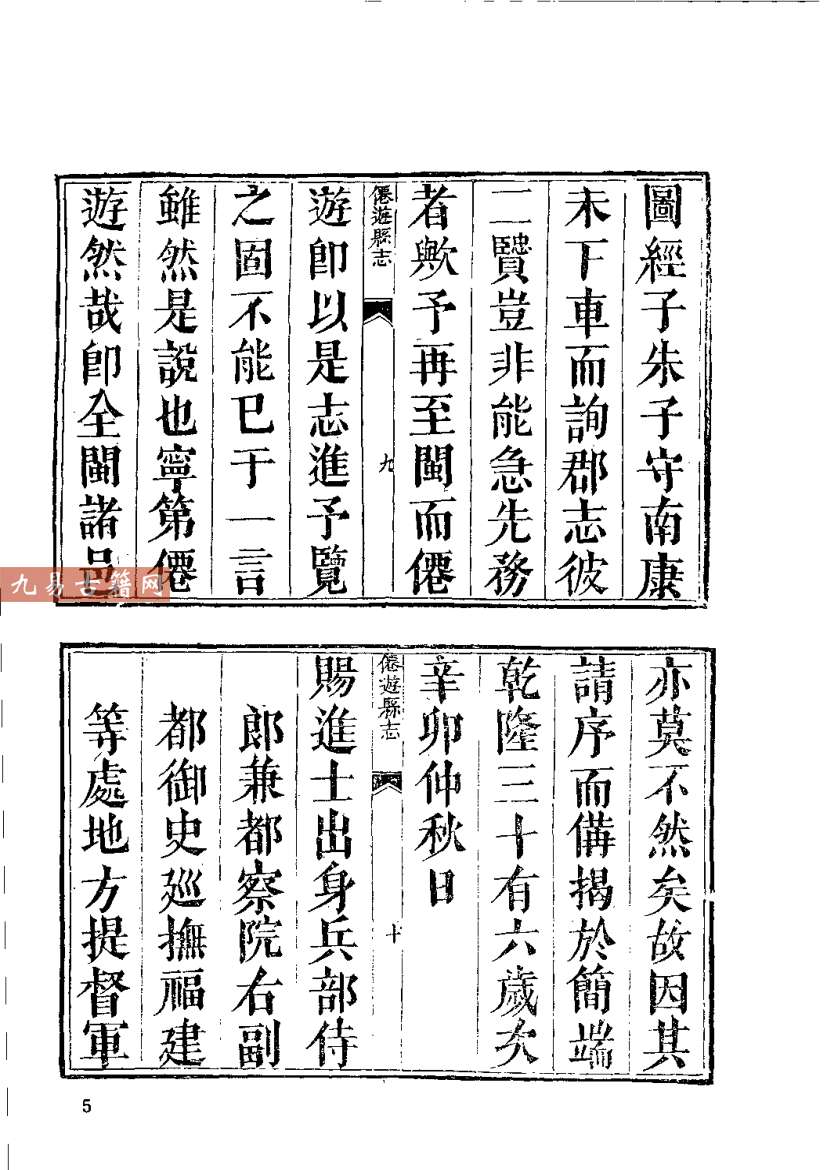 圖經子朱子守南康
未下車而詢郡志彼
二賢豈非能急先務
者歟予再至閩而僊
僊遊縣志
九
遊卽以是志進予覽
之固不能已于一言
雖然是說也寧第僊
遊然哉卽全閩諸邑
九易古籍网
亦莫不然矣故因其
請序而偹揭於簡端
乾隆三十有六歲次
辛卯仲秋日
僊遊縣志
十
賜進士出身兵部侍
郎兼都察院右副
都御史廵撫福建
等處地方提督軍
5